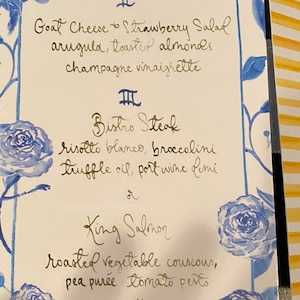 II
Goat Cheese & Strawberry Salad
arugula, toasted almonds
champagne vinaigrette
III
Bistro Steak
risotto blanco, broccolini
truffle oil, port wine demi
King Salmon
roasted vegetable couscous,
pea purée tomato pesto